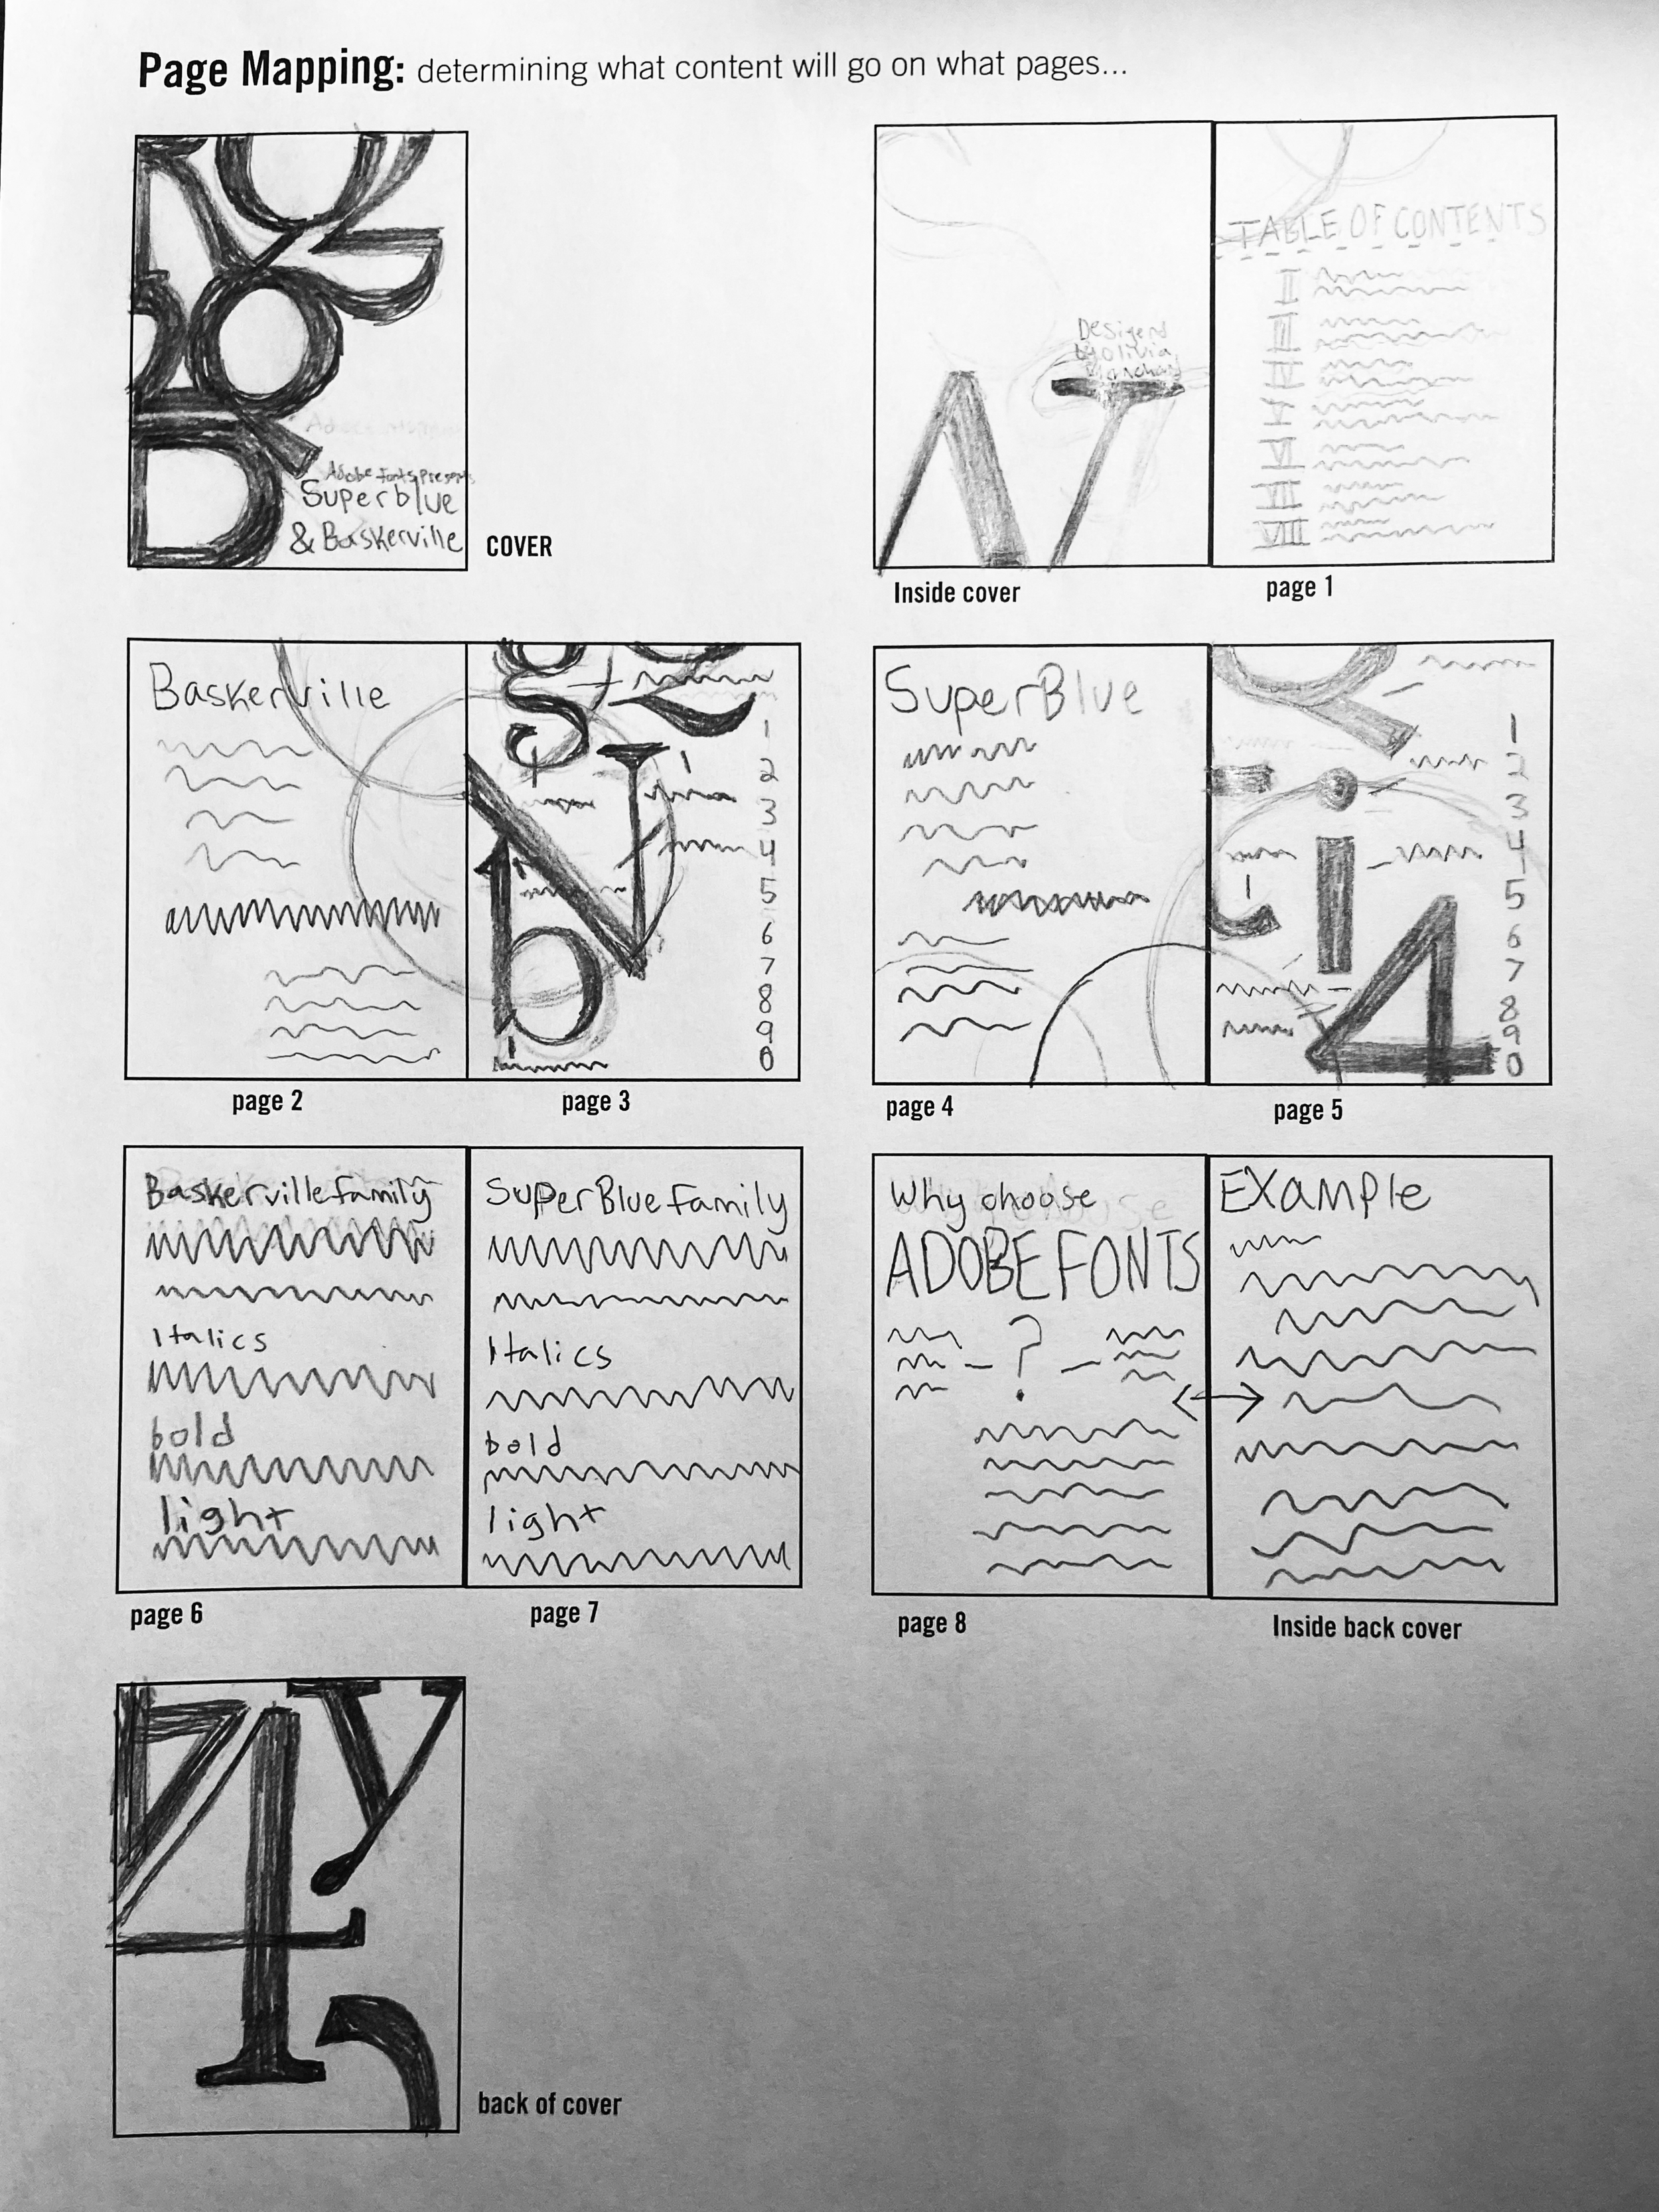 Page Mapping: determining what content will go on what pages...
Adobe Fonts Presents
Superblue
& Baskerville
COVER
Designed
by Olivia
Inside cover
TABLE OF CONTENTS
II
III
IV
V
VI
VII
VIII
page 1
Baskerville
page 2
g Q
N
b
1
2
3
4
5
6
7
8
9
0
page 3
SuperBlue
page 4
i
4
1
2
3
4
5
6
7
8
9
0
page 5
Baskerville family
Italics
bold
light
page 6
SuperBlue family
Italics
bold
light
page 7
Why choose
ADOBE FONTS
?
page 8
EXample
Inside back cover
4 y
back of cover